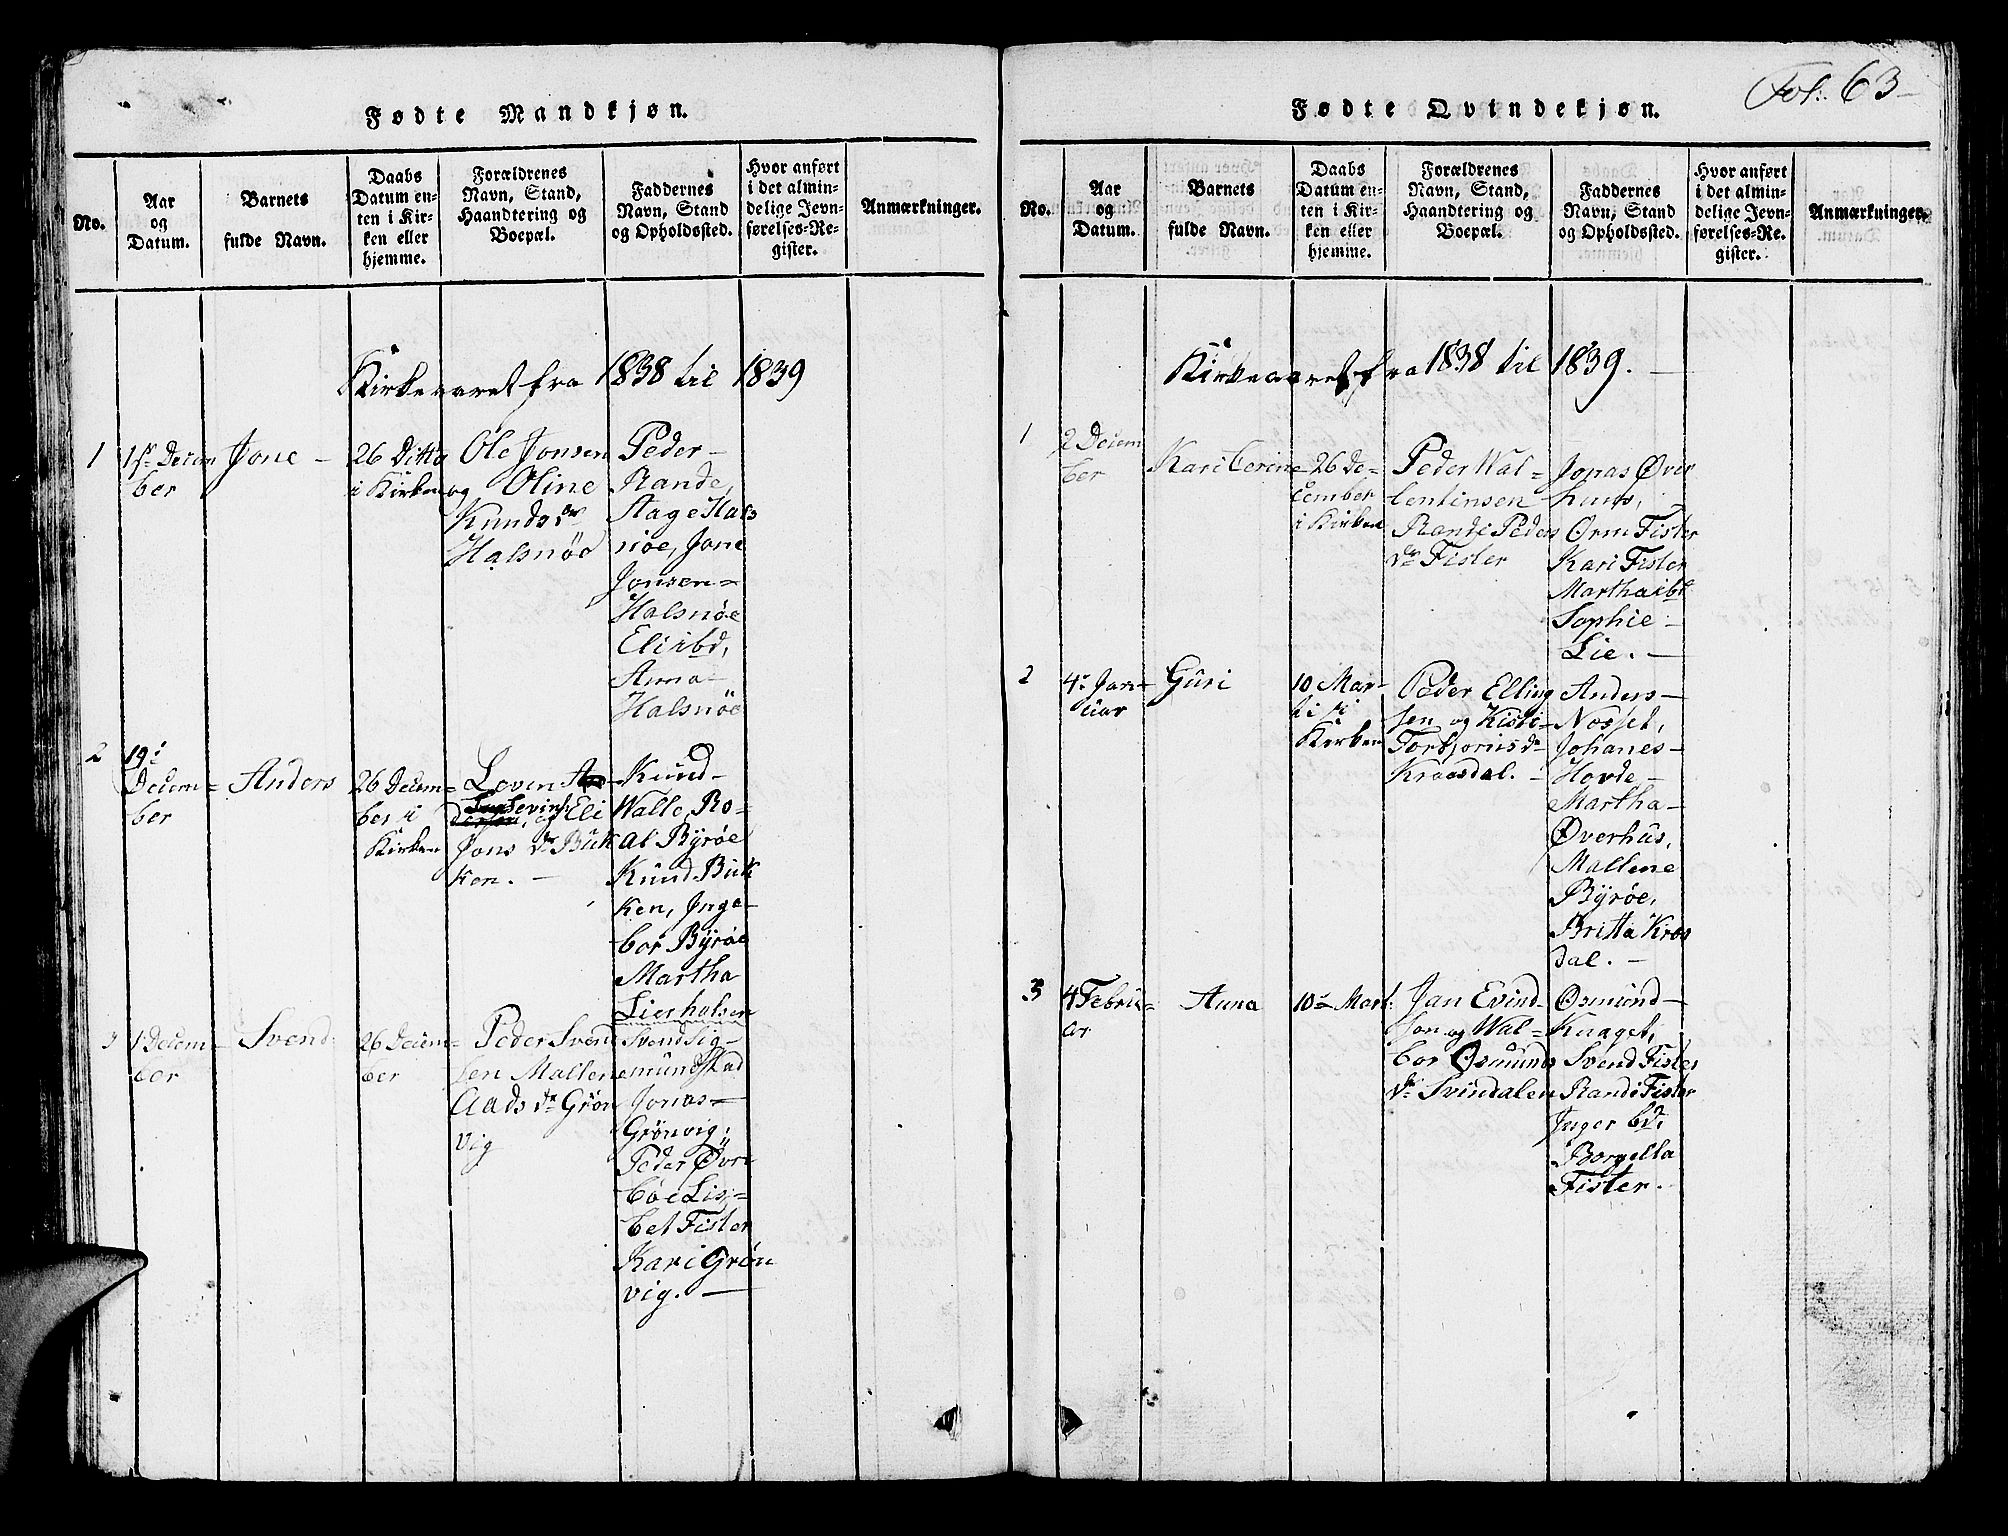 Fol: 63
Fødte Mandkjøn.
No.
Aar
og
Datum.
Barnets
fulde Navn.
Daabs
Datum en-
ten i Kir-
ken eller
hjemme.
Forældrenes
Navn, Stand,
Haandtering og
Boepæl.
Faddernes
Navn, Stand
og Opholdssted.
Hvor anført
i det almin-
delige Jevn-
førelses-Re-
gister.
Anmærkninger.
Kirkeaaret fra 1838 til 1839
1
1ste Decem
ber
Jone
26 Ditto
i Kirken
Ole Jonsen
og Oline
Knudsdr
Halsnöe
Peder
Rande,
Aage Hals
nöe, Jone
Jonsen
Halsnöe
Eli ibd,
Anna
Halsnöe
2
19de
Decem=
ber
Anders
26 Decem=
ber i
Kirken
Loven
og Eli
Jons dr Buk
ken.
Knud
Walle, Ro=
al Byröe
Knud Buk
ken, Inge
bor Byröe
Martha
Lierholsen
3
1 Decem
ber
Svend
26 Decem=
ber
Peder Svend
sen Mallene
Aads dr Grön
vig
Svend Sig=
mundstad
Jonas
Grönvig,
Peder Övre
böe Lis=
bet Fister
Kari Grön
vig.
Fødte Qvindekjøn.
No.
Aar
og
Datum.
Barnets
fulde Navn.
Daabs
Datum en-
ten i Kir-
ken eller
hjemme.
Forældrenes
Navn, Stand,
Haandtering og
Boepæl.
Faddernes
Navn, Stand
og Opholdssted.
Hvor anført
i det almin-
delige Jevn-
førelses-Re-
gister.
Anmærkninger.
Kirkeaaret fra 1838 til 1839.
1
2 Decem
ber
Kari Cerine
26 De-
cember
i Kirken
Peder Wal=
lentinsen
Randi Peders
dr Fister
Jonas Över
huus,
Orm Fister
Kari Fister
Martha ibd
Sophie
Lie.
2
4de Jan
uar
Guri
10 Mar-
ti i
Kirken
Peder Elling
sen og Kisti=
Torbjörns dr
Kraasdal.
Anders
Nosset,
Johanes
Hovde
Martha
Överhus,
Mallene
Byröe,
Britta Kros
dal.
3
4 Febru
ar
Anna
10de Mart:
Jan Evind
sen og Wal=
bor Osmunds
dr Svindalen
Osmund
Knaget,
Svend Fister
Randi Fister
Inger bd,
Borgella
Fister.